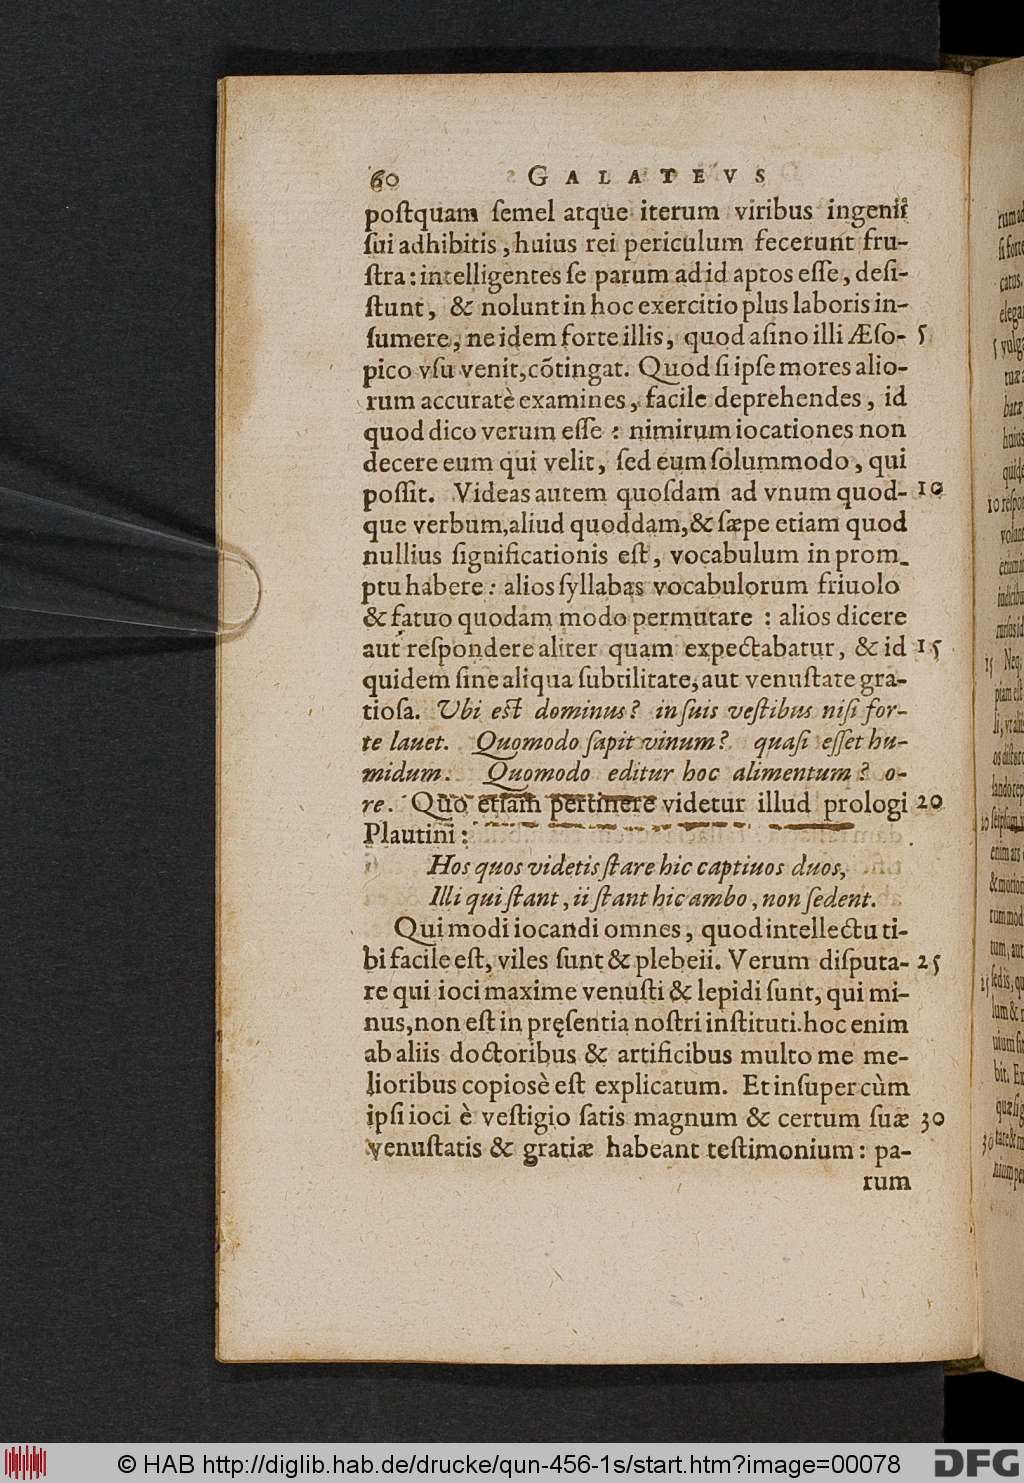 60 GALATEVS
poſtquam ſemel atque iterum viribus ingenii
ſui adhibitis, huius rei periculum fecerunt fru-
ſtra: intelligentes ſe parum ad id aptos eſſe, deſi-
ſtunt, & nolunt in hoc exercitio plus laboris in-
ſumere, ne idem forte illis, quod aſino illi Æſo- 5
pico vſu venit, cõtingat. Quod ſi ipſe mores alio-
rum accuratè examines, facile deprehendes, id
quod dico verum eſſe: nimirum iocationes non
decere eum qui velit, ſed eum ſolummodo, qui
poſſit. Videas autem quoſdam ad vnum quod- 10
que verbum, aliud quoddam, & ſæpe etiam quod
nullius ſignificationis eſt, vocabulum in prom-
ptu habere: alios ſyllabas vocabulorum friuolo
& fatuo quodam modo permutare: alios dicere
aut reſpondere aliter quam expectabatur, & id 15
quidem ſine aliqua ſubtilitate, aut venuſtate gra-
tioſa. Vbi eſt dominus? in ſuis veſtibus niſi for-
te lauet. Quomodo ſapit vinum? quaſi eſſet hu-
midum. Quomodo editur hoc alimentum? o-
re. Quo etiam pertinere videtur illud prologi 20
Plautini:
Hos quos videtis ſtare hic captiuos duos,
Illi qui ſtant, ii ſtant hic ambo, non ſedent.
Qui modi iocandi omnes, quod intellectu ti-
bi facile eſt, viles ſunt & plebeii. Verum diſputa- 25
re qui ioci maxime venuſti & lepidi ſunt, qui mi-
nus, non eſt in pręſentia noſtri inſtituti. hoc enim
ab aliis doctoribus & artificibus multo me me-
lioribus copiosè eſt explicatum. Et inſuper cùm
ipſi ioci è veſtigio ſatis magnum & certum ſuæ 30
venuſtatis & gratiæ habeant teſtimonium: pa-
rum
© HAB http://diglib.hab.de/drucke/qun-456-1s/start.htm?image=00078
DFG